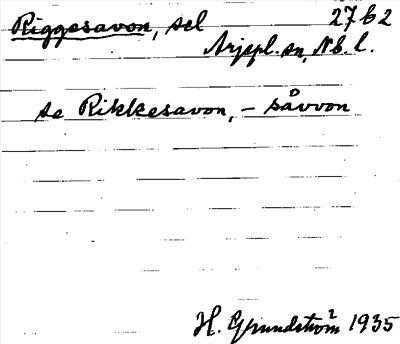 Riggesavon, sel 27b2
Arjepl. sn, Nb. l.
se Rikkesavon, - såvvon
H. Grundström 1935